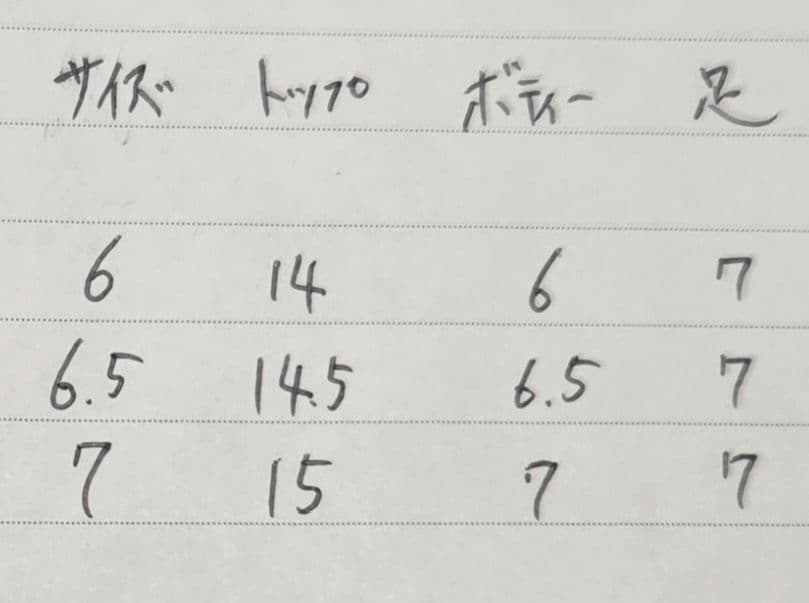 サイズ トップ ボディー 足
6 14 6 7
6.5 14.5 6.5 7
7 15 7 7